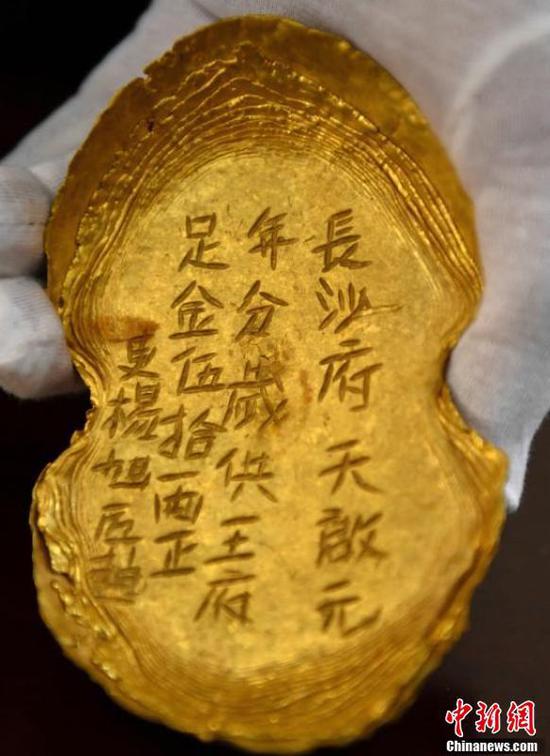 長沙府 天啟元
年分歲供王府
足金伍拾兩正
吏楊旭匠趙
中新网
Chinanews.com